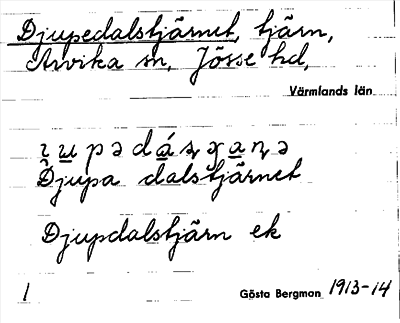 Djupedalstjärnet, tjärn,
Arvika sn, Jösse hd,
Värmlands län
Djupa dalstjärnet
Djupdalstjärn ek
1 Gösta Bergman 1913-14